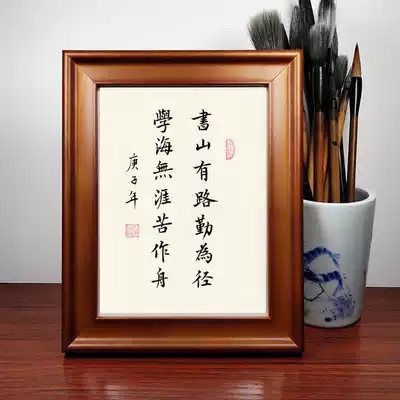 書山有路勤為径
學海無涯苦作舟
庚子年